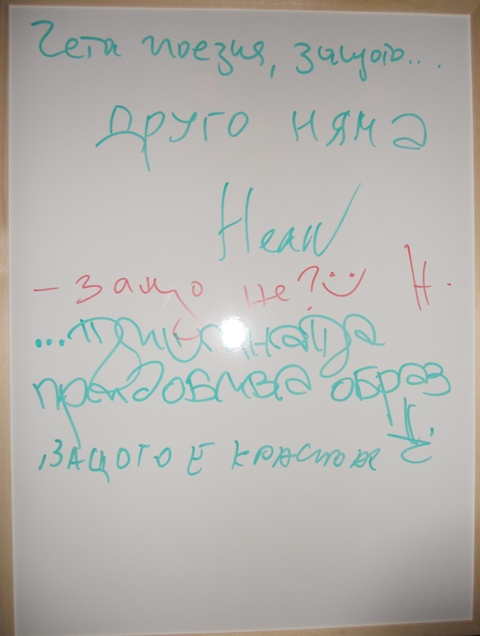 Чета поезия, защото...
друго няма
- защо не? Н.
придобива образ
защото е красива